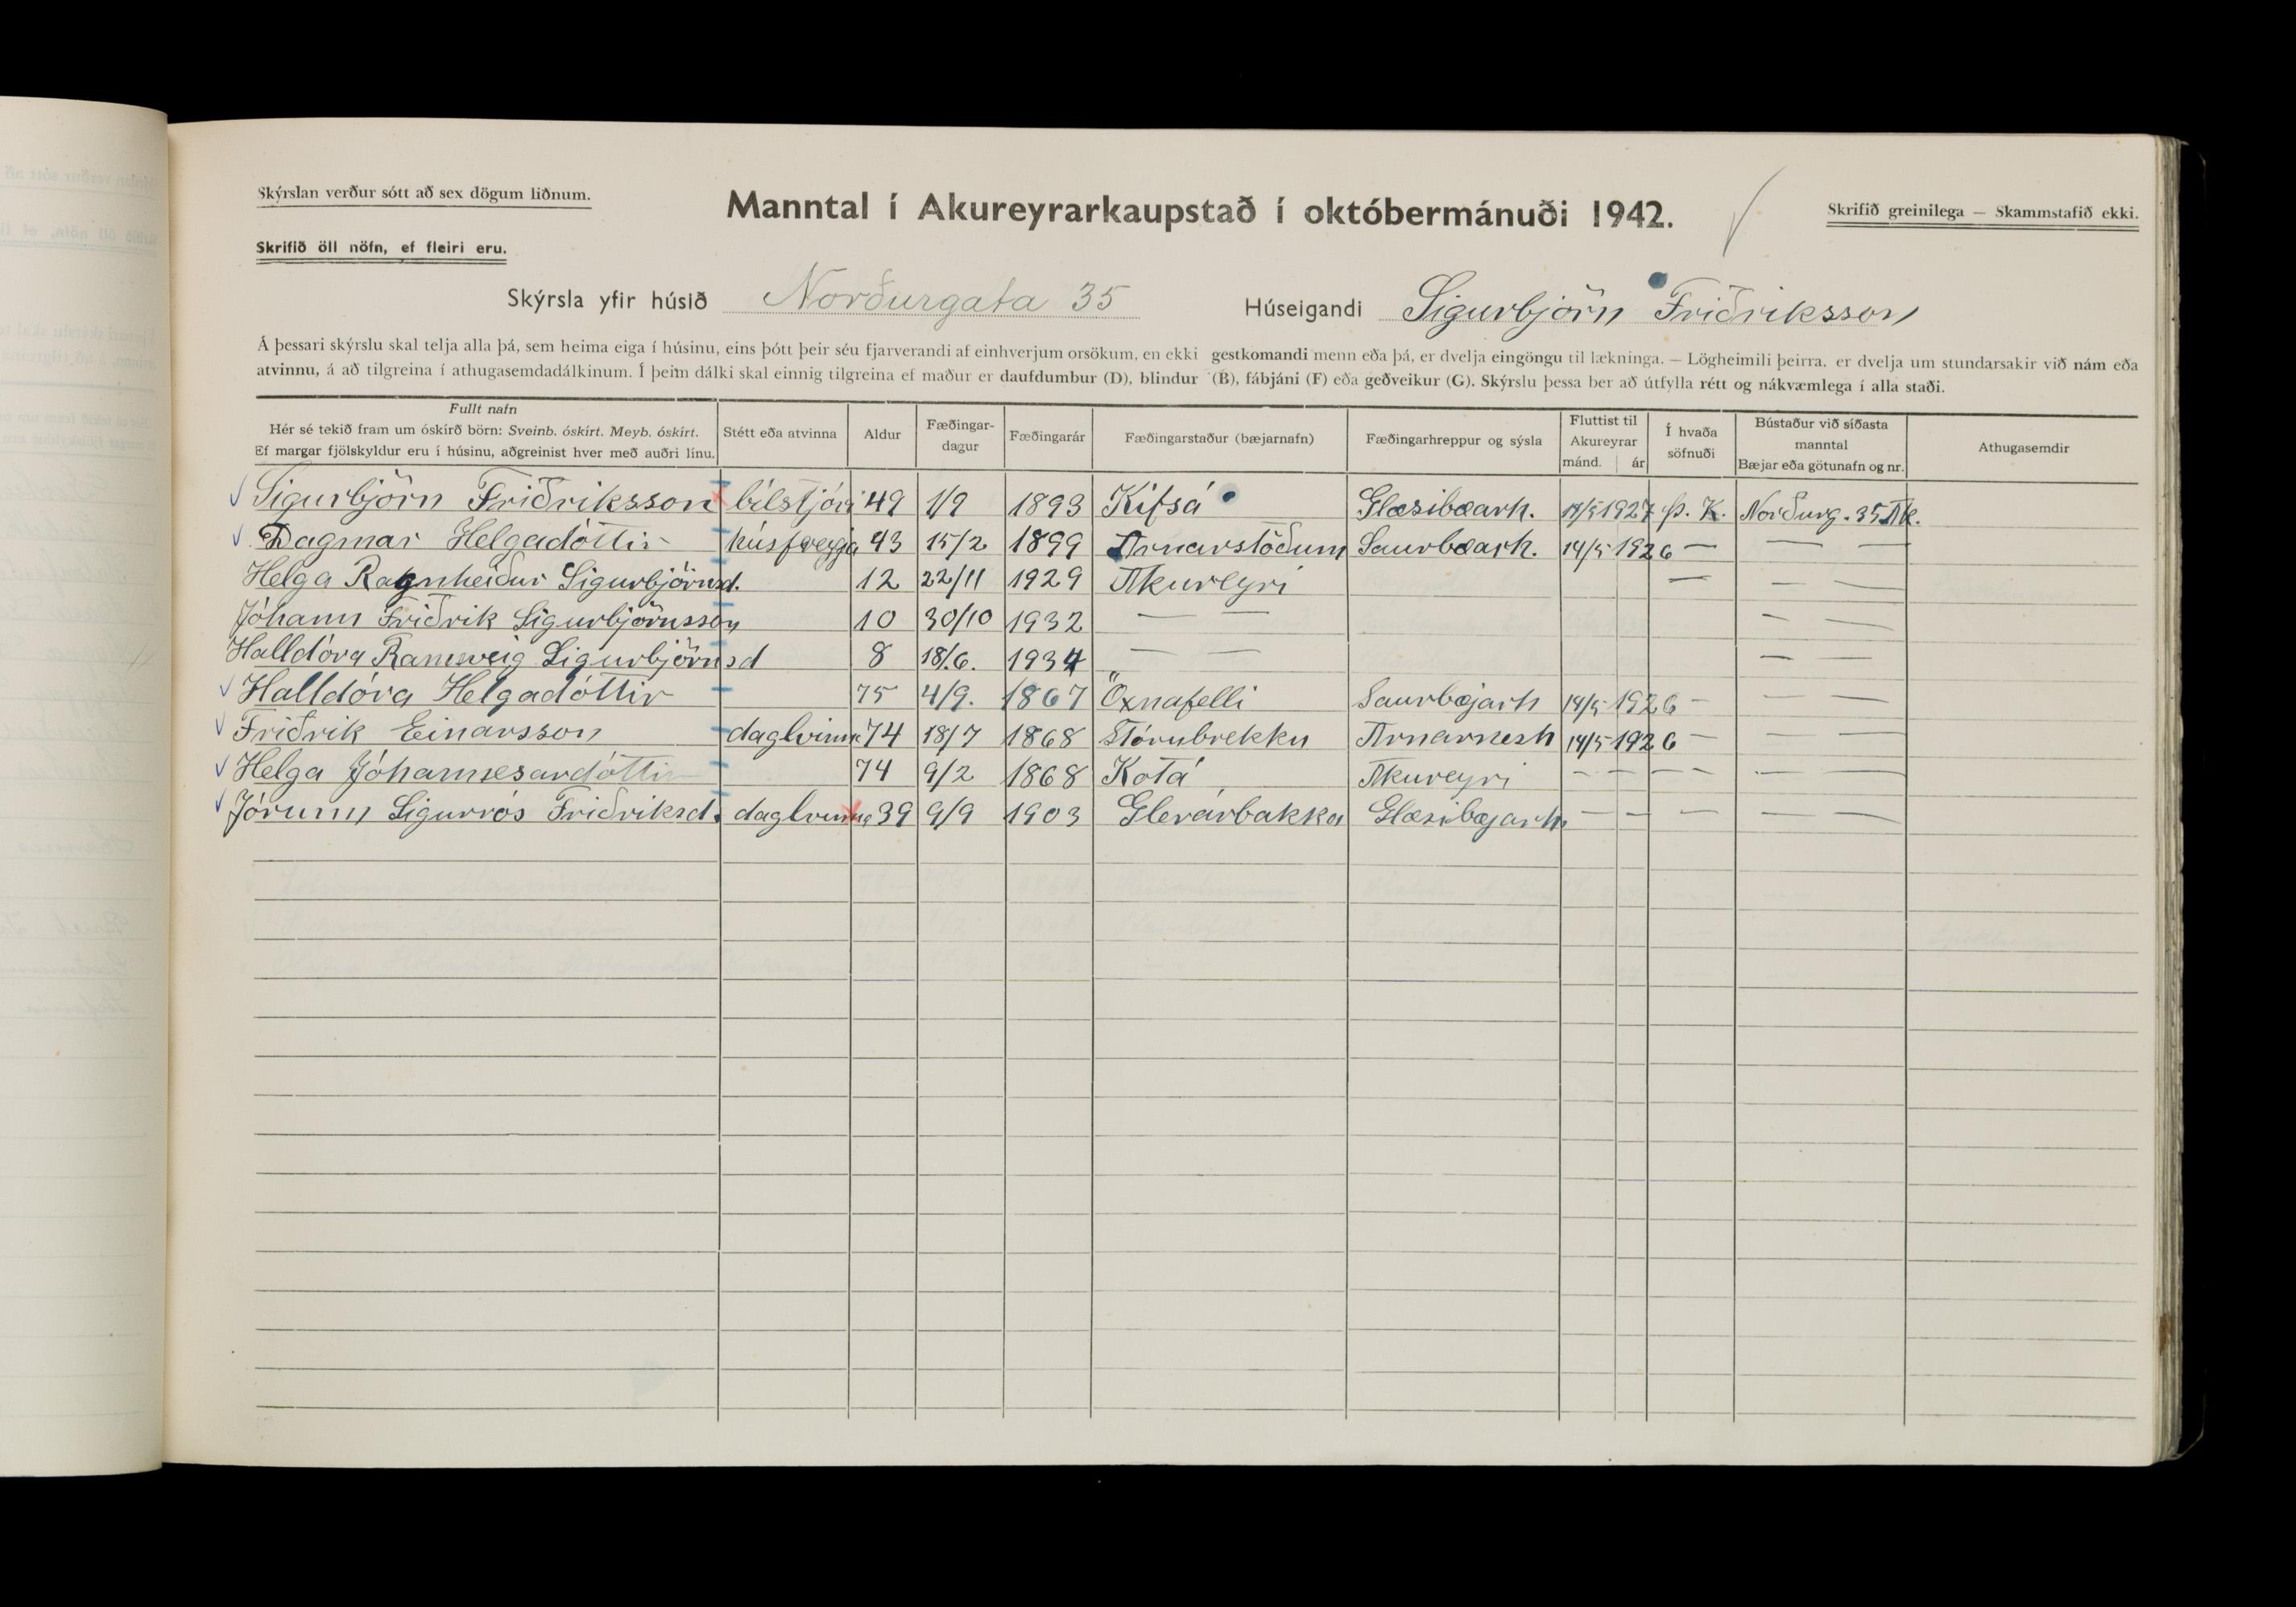 Skýrslan verður sótt að sex dögum liðnum.
Skrifið öll nöfn, ef fleiri eru.
Manntal í Akureyrarkaupstað í októbermánuði 1942.
Skrifið greinilega — Skammstafið ekki.
Skýrsla yfir húsið Norðurgata 35 Húseigandi Sigurbjörn Friðriksson
Á þessari skýrslu skal telja alla þá, sem heima eiga í húsinu, eins þótt þeir séu fjarverandi af einhverjum orsökum, en ekki gestkomandi menn eða þá, er dvelja eingöngu til lækninga. — Lögheimili þeirra, er dvelja um stundarsakir við nám eða
atvinnu, á að tilgreina í athugasemdadálkinum. Í þeim dálki skal einnig tilgreina ef maður er daufdumbur (D), blindur (B), fábjáni (F) eða geðveikur (G). Skýrslu þessa ber að útfylla rétt og nákvæmlega í alla staði.
Fullt nafn
Hér sé tekið fram um óskírð börn: Sveinb. óskírt. Meyb. óskírt.
Ef margar fjölskyldur eru í húsinu, aðgreinist hver með auðri línu.
Stétt eða atvinna
Aldur
Fæðingar-
dagur
Fæðingarár
Fæðingarstaður (bæjarnafn)
Fæðingarhreppur og sýsla
Fluttist til
Akureyrar
mánd. ár
Í hvaða
söfnuði
Bústaður við síðasta
manntal
Bæjar eða götunafn og nr.
Athugasemdir
Sigurbjörn Friðriksson bílstjóri 49 1/9 1893 Kífsá Glæsibæarh. 14/5 1927 Þ. K. Norðurg. 35 Ak.
Dagmar Helgadóttir húsfreyja 43 15/2 1899 Arnarstöðum Saurbæarh. 14/5 1926 — — —
Helga Ragnheiður Sigurbjörnsd. 12 22/11 1929 Akureyri — — —
Jóhann Friðrik Sigurbjörnsson 10 30/10 1932 — — — —
Halldóra Rannveig Sigurbjörnsd 8 18/6. 1934 — — — —
Halldóra Helgadóttir 75 4/9. 1867 Öxnafelli Saurbæjarh 14/5 1926 — — —
Friðrik Einarsson daglvinna 74 18/7 1868 Stórubrekku Arnarnesh 14/5 1926 — — —
Helga Jóhannesardóttir 74 9/2 1868 Kotá Akureyri — — — — — —
Jórunn Sigurrós Friðriksd. daglvinna 39 9/9 1903 Glerárbakka Glæsibæjarh. — — — — —